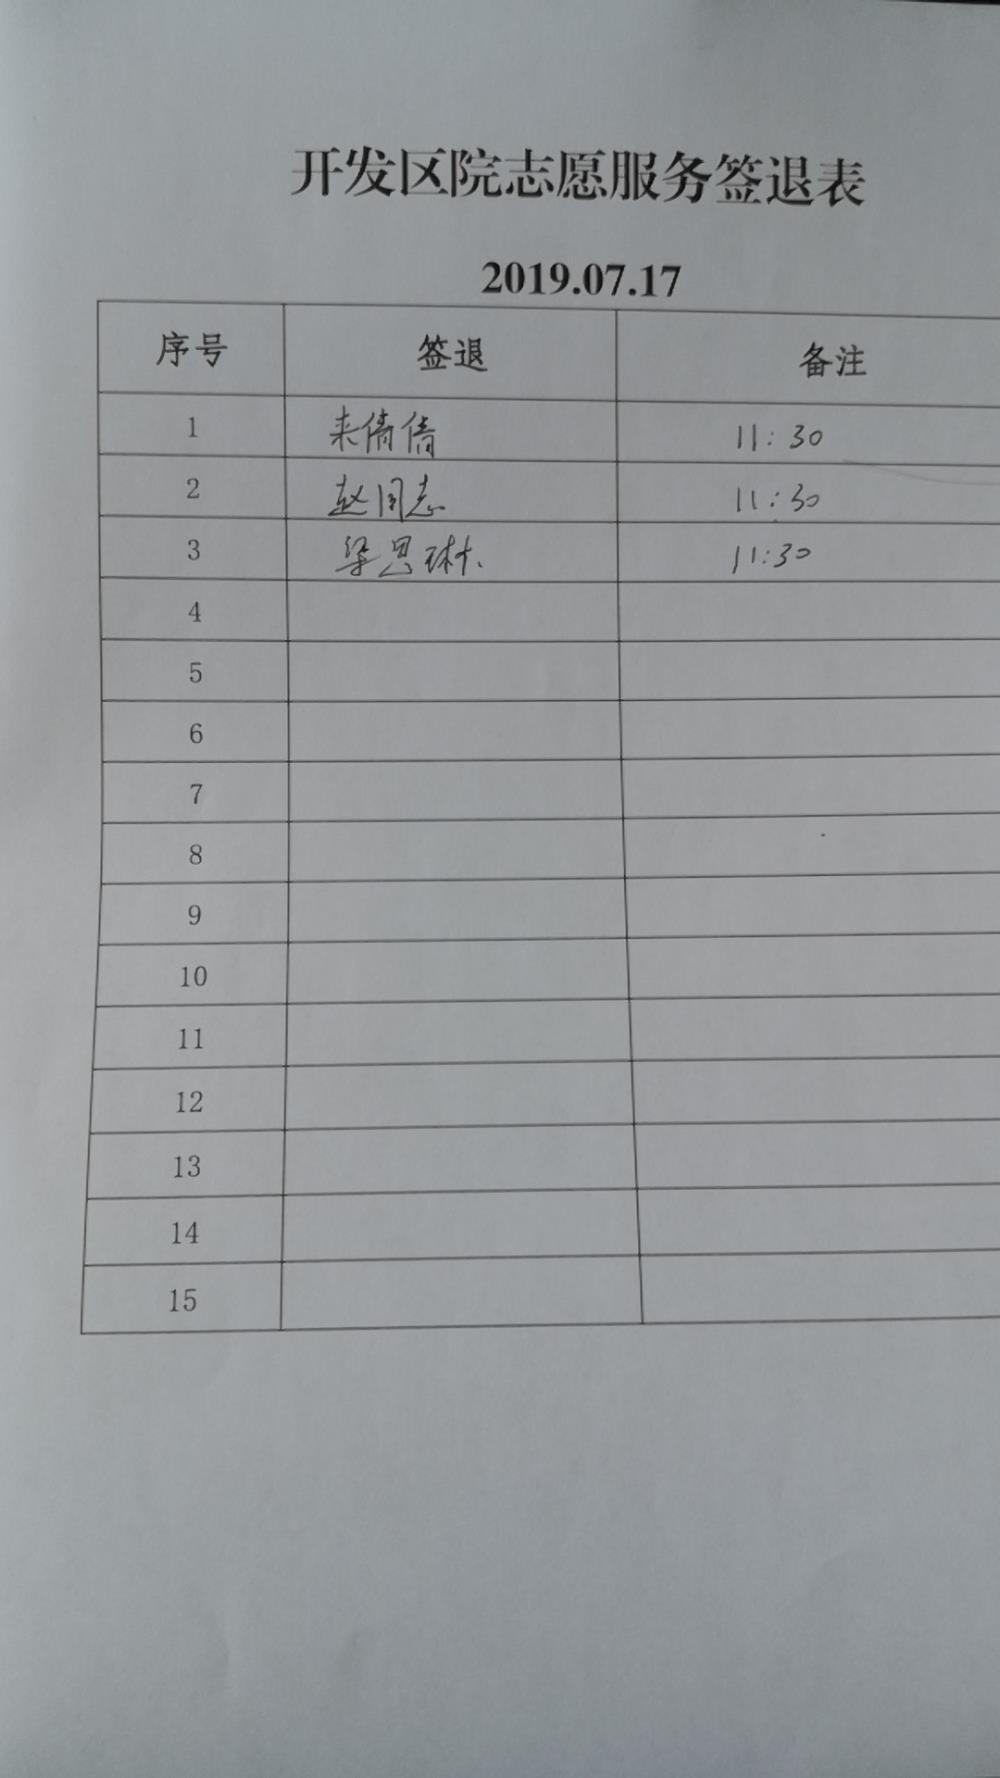 开发区院志愿服务签退表
2019.07.17
序号 签退 备注
1 来倩倩 11:30
2 赵同志 11:30
3 梁思琳 11:30
4
5
6
7
8
9
10
11
12
13
14
15